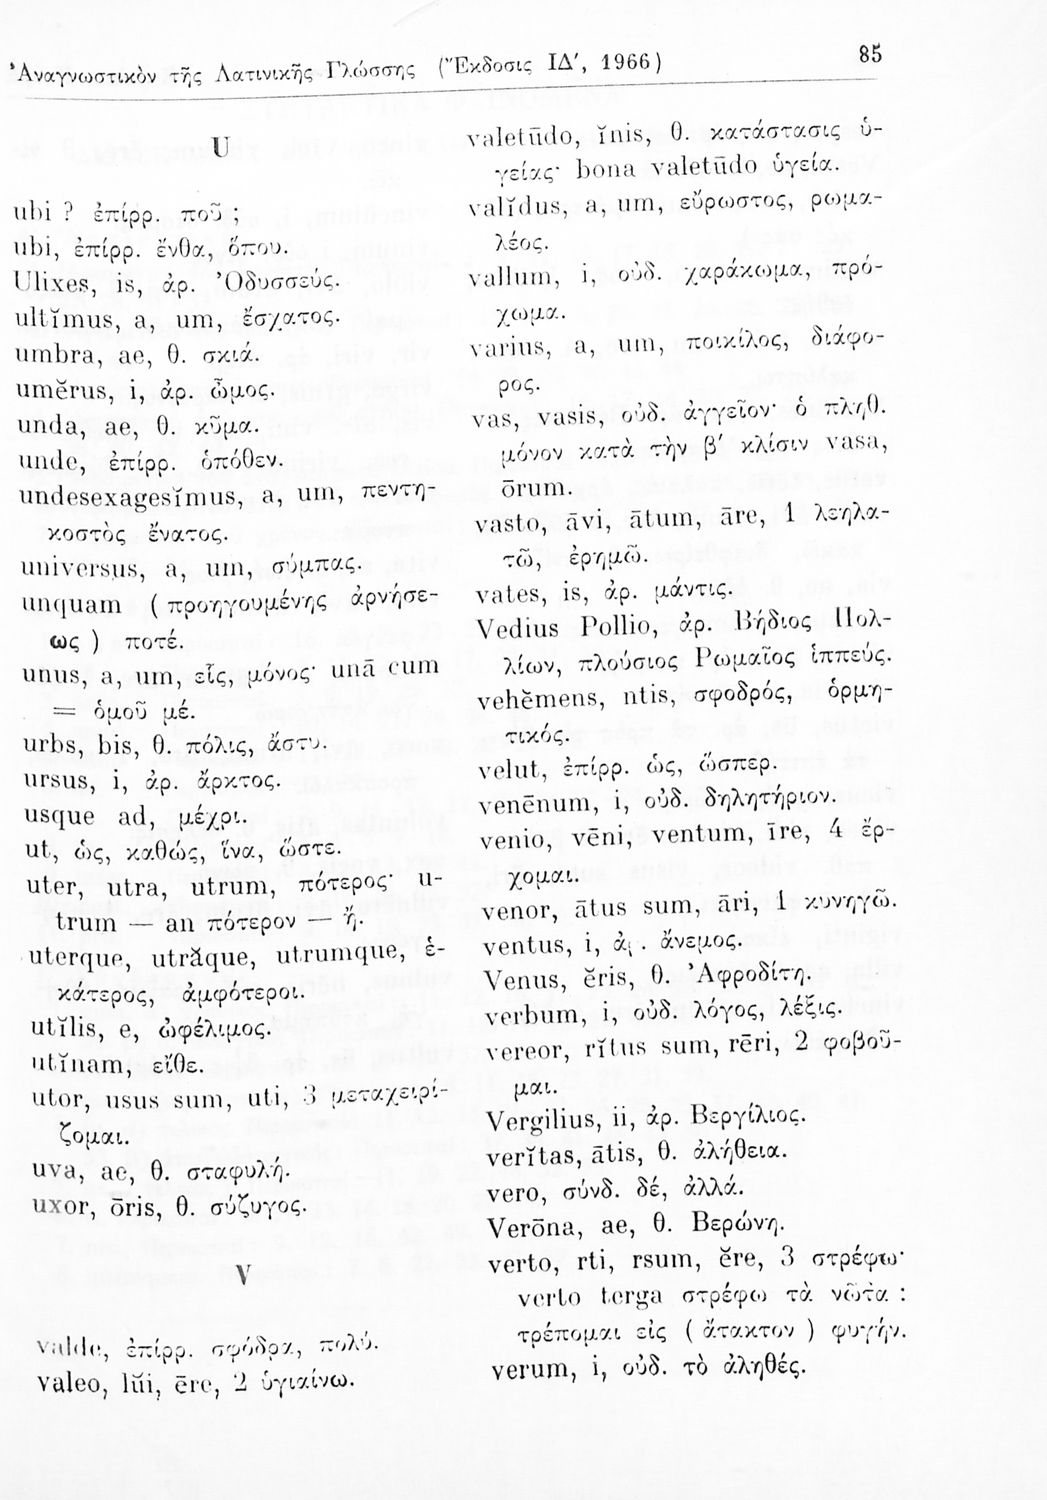 Ἀναγνωστικὸν τῆς Λατινικῆς Γλώσσης (Ἔκδοσις ΙΔ′, 1966) 85
U
ubi ? ἐπίρρ. ποῦ ;
ubi, ἐπίρρ. ἔνθα, ὅπου.
Ulixes, is, ἀρ. Ὀδυσσεύς.
ultĭmus, a, um, ἔσχατος.
umbra, ae, θ. σκιά.
umĕrus, i, ἀρ. ὦμος.
unda, ae, θ. κῦμα.
unde, ἐπίρρ. ὁπόθεν.
undesexagesĭmus, a, um, πεντη-
κοστὸς ἔνατος.
universus, a, um, σύμπας.
unquam ( προηγουμένης ἀρνήσε-
ως ) ποτέ.
unus, a, um, εἷς, μόνος· unā cum
= ὁμοῦ μέ.
urbs, bis, θ. πόλις, ἄστυ.
ursus, i, ἀρ. ἄρκτος.
usque ad, μέχρι.
ut, ὡς, καθώς, ἵνα, ὥστε.
uter, utra, utrum, πότερος· u-
trum — an πότερον — ἤ.
uterque, utrăque, utrumque, ἑ-
κάτερος, ἀμφότεροι.
utĭlis, e, ὠφέλιμος.
utĭnam, εἴθε.
utor, usus sum, uti, 3 μεταχειρί-
ζομαι.
uva, ae, θ. σταφυλή.
uxor, ōris, θ. σύζυγος.
V
valde, ἐπίρρ. σφόδρα, πολύ.
valeo, lŭi, ēre, 2 ὑγιαίνω.
valetūdo, ĭnis, θ. κατάστασις ὑ-
γείας· bona valetūdo ὑγεία.
valĭdus, a, um, εὔρωστος, ρωμα-
λέος.
vallum, i, οὐδ. χαράκωμα, πρό-
χωμα.
varius, a, um, ποικίλος, διάφο-
ρος.
vas, vasis, οὐδ. ἀγγεῖον· ὁ πληθ.
μόνον κατὰ τὴν β′ κλίσιν vasa,
ōrum.
vasto, āvi, ātum, āre, 1 λεηλα-
τῶ, ἐρημῶ.
vates, is, ἀρ. μάντις.
Vedius Pollio, ἀρ. Βήδιος Πολ-
λίων, πλούσιος Ρωμαῖος ἱππεύς.
vehĕmens, ntis, σφοδρός, ὁρμη-
τικός.
velut, ἐπίρρ. ὡς, ὥσπερ.
venēnum, i, οὐδ. δηλητήριον.
venio, vēni, ventum, īre, 4 ἔρ-
χομαι.
venor, ātus sum, āri, 1 κυνηγῶ.
ventus, i, ἀρ. ἄνεμος.
Venus, ĕris, θ. Ἀφροδίτη.
verbum, i, οὐδ. λόγος, λέξις.
vereor, rĭtus sum, rēri, 2 φοβοῦ-
μαι.
Vergilius, ii, ἀρ. Βεργίλιος.
verĭtas, ātis, θ. ἀλήθεια.
vero, σύνδ. δέ, ἀλλά.
Verōna, ae, θ. Βερώνη.
verto, rti, rsum, ĕre, 3 στρέφω·
verto terga στρέφω τὰ νῶτα :
τρέπομαι εἰς ( ἄτακτον ) φυγήν.
verum, i, οὐδ. τὸ ἀληθές.